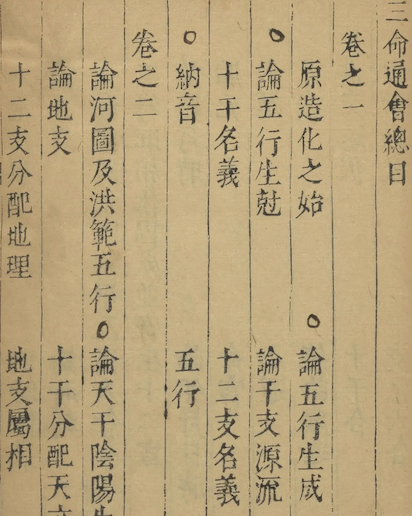 三命通會總目
卷之一
原造化之始 論五行生成
論五行生尅 論干支源流
十干名義 十二支名義
納音 五行
卷之二
論河圖及洪範五行 論天干陰陽生
論地支 十干分配天文
十二支分配地理 地支屬相